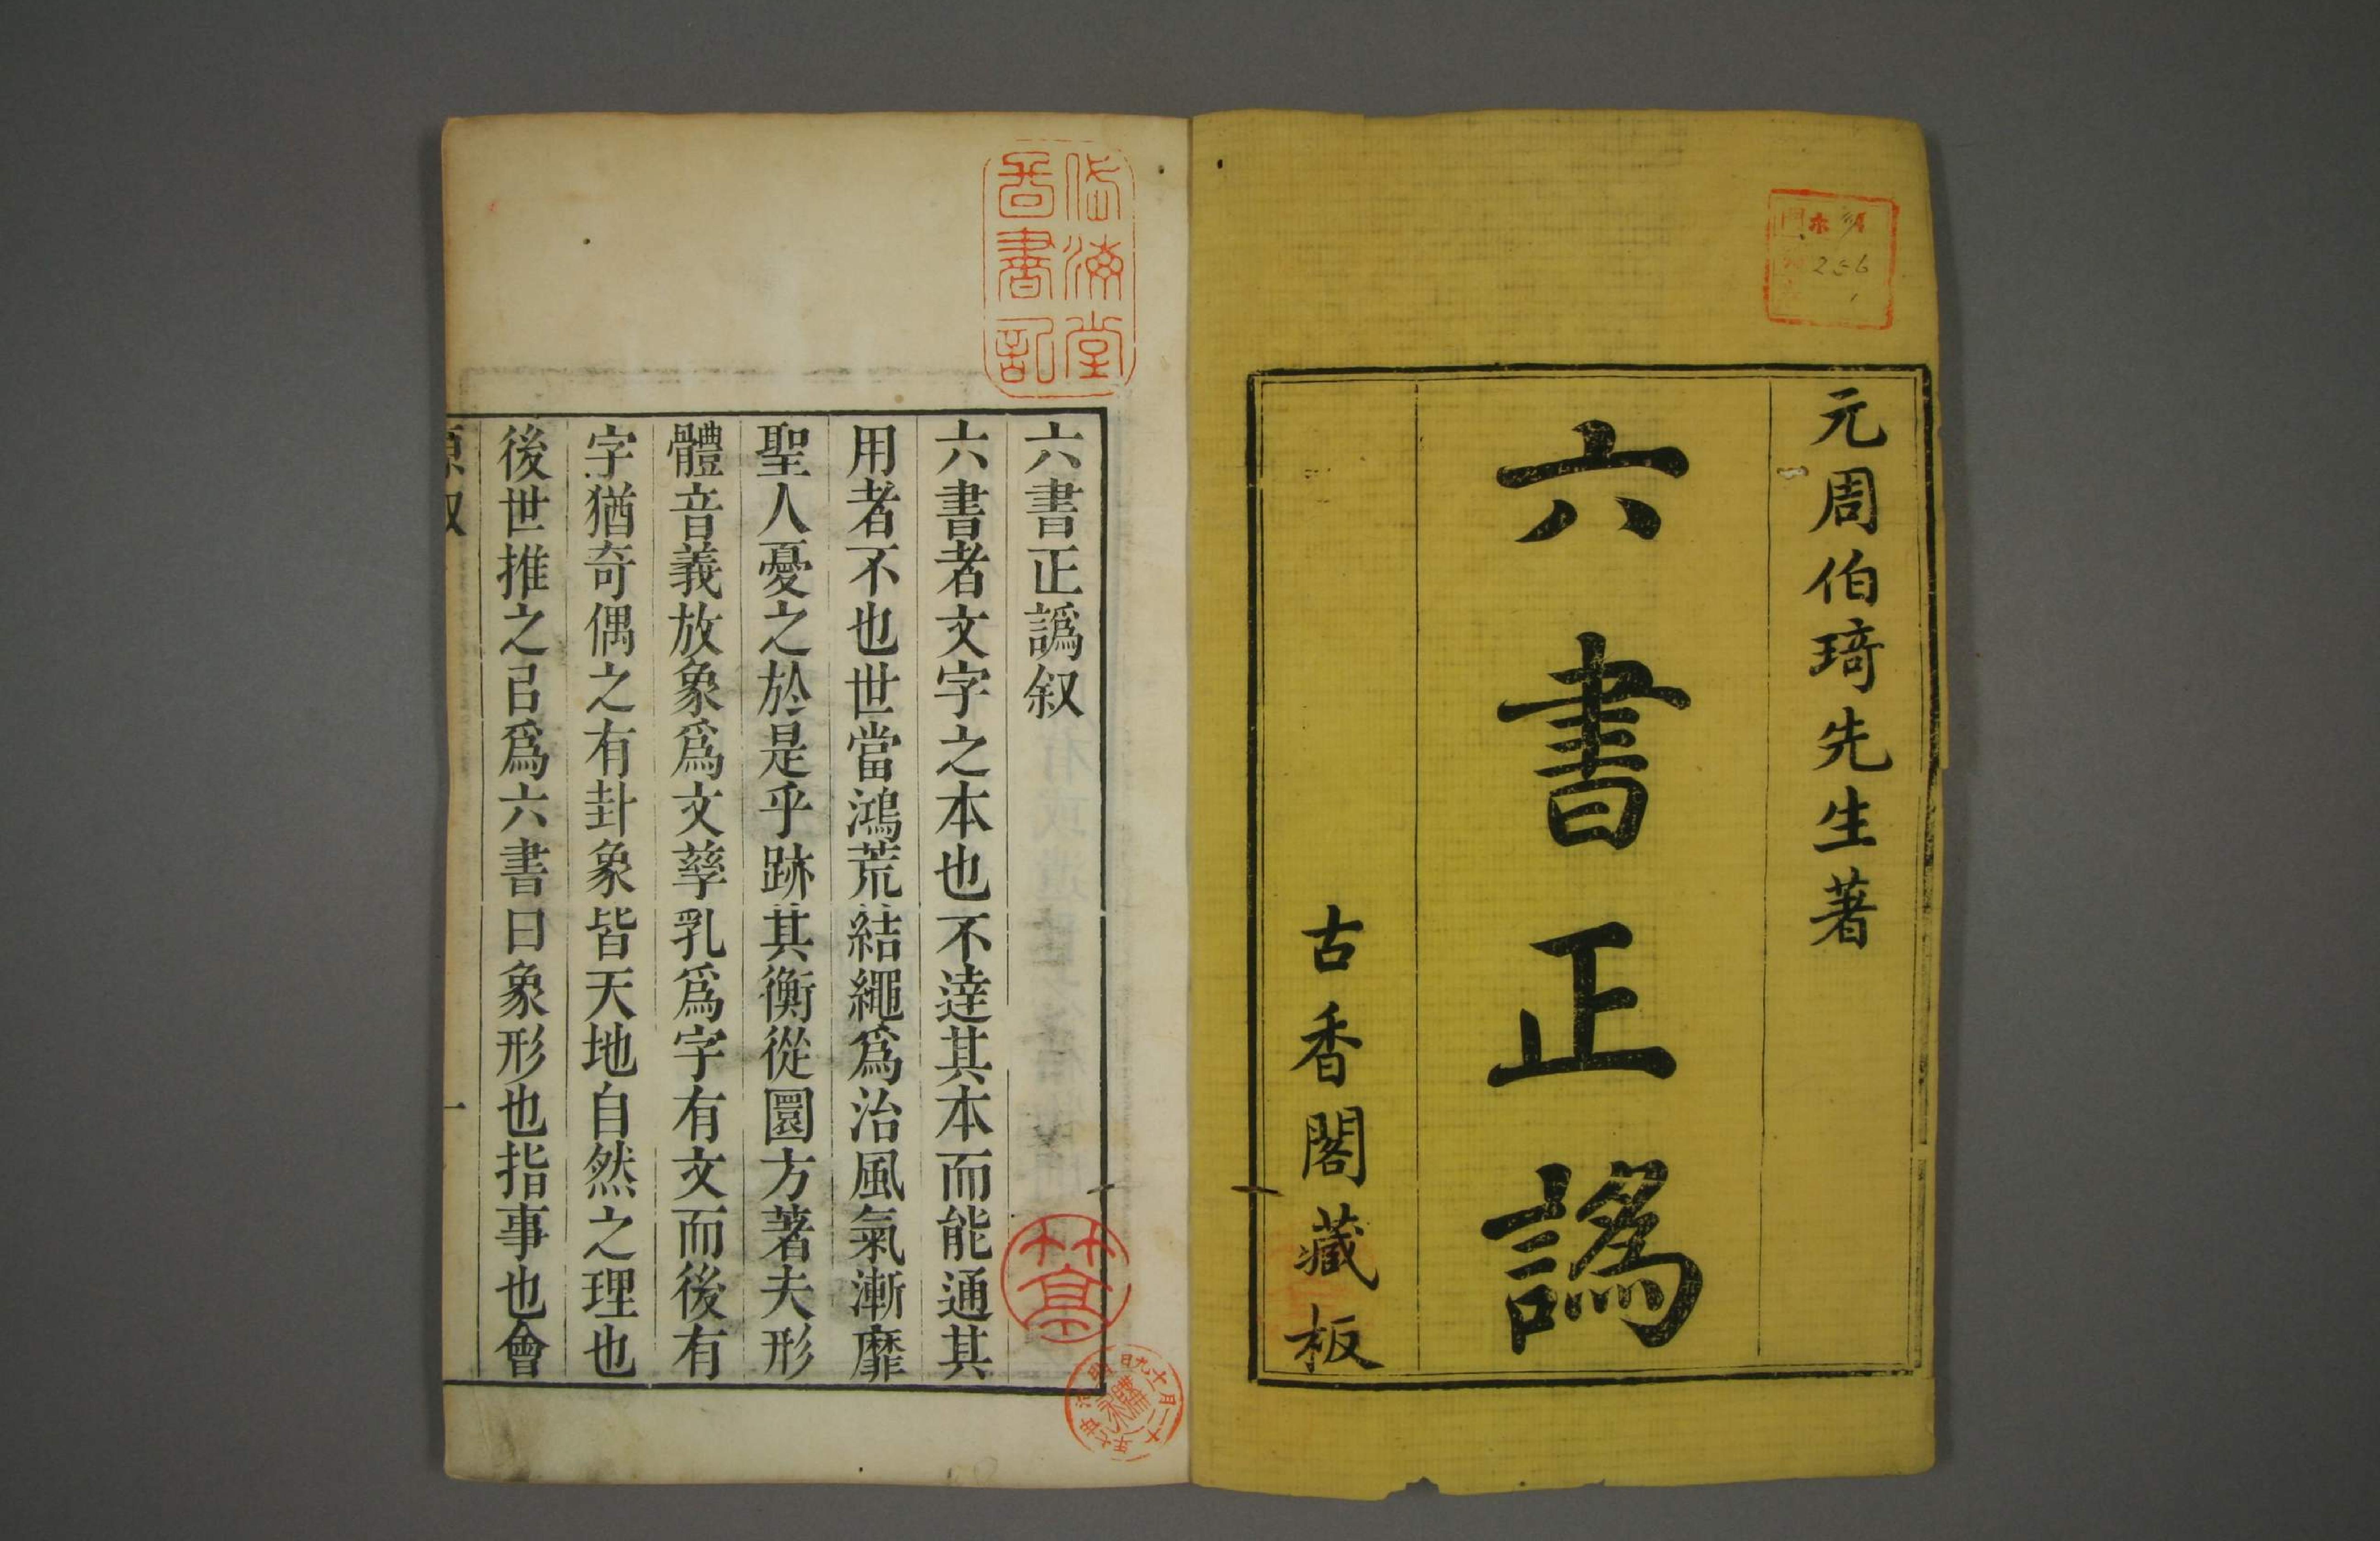 元周伯琦先生著
六書正譌
古香閣藏板
256
岱海堂
香書記
六書正譌叙
六書者文字之本也不達其本而能通其
用者不也世當鴻荒結繩爲治風氣漸靡
聖人憂之於是乎跡其衡從圜方著夫形
體音義放象爲文孳乳爲字有文而後有
字猶奇偶之有卦象皆天地自然之理也
後世推之㠯爲六書曰象形也指事也會
原叙
一